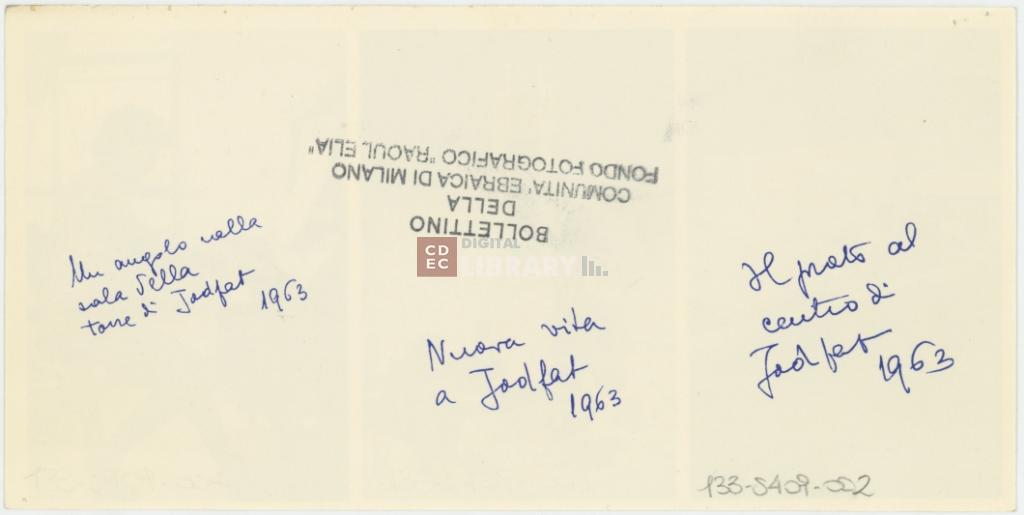 Un angolo nella
sala della
torre di Jodfat 1963
BOLLETTINO
DELLA
COMUNITA' EBRAICA DI MILANO
FONDO FOTOGRAFICO "RAOUL ELIA"
CDEC DIGITAL
LIBRARY
Nuova vita
a Jodfat
1963
Il prato al
centro di
Jodfat
1963
133-5409-002